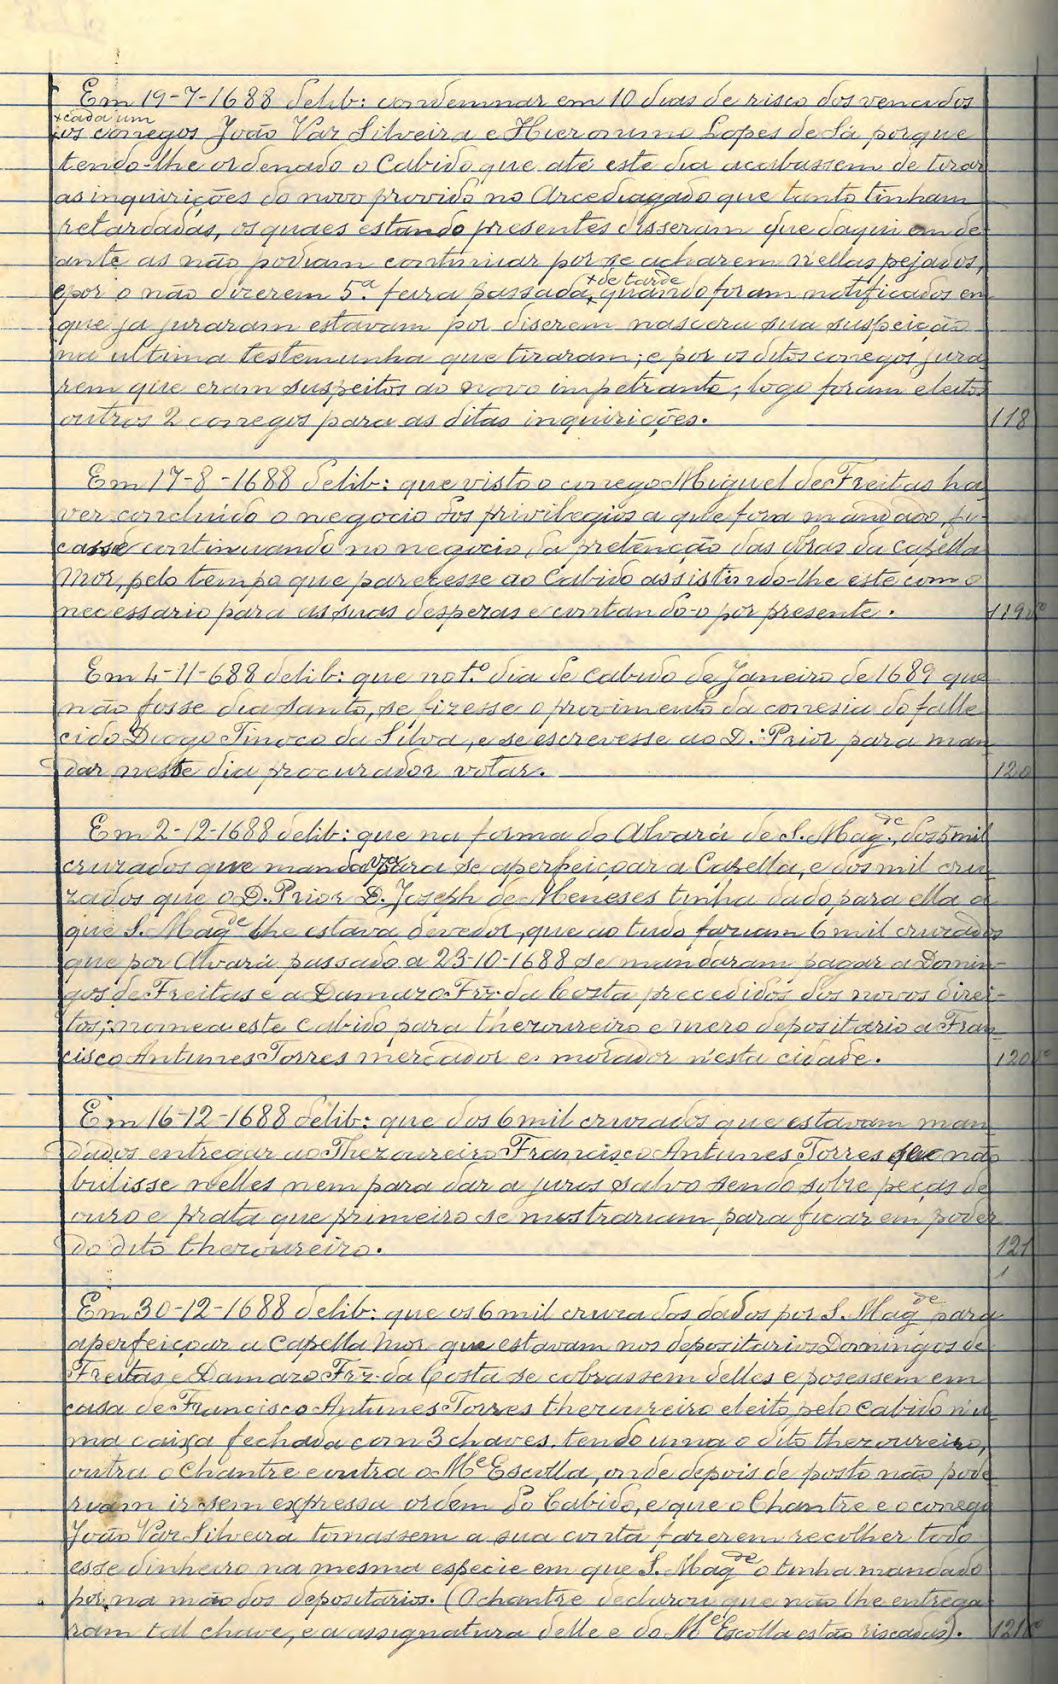 Em 19-7-1688 delib: condemnar em 10 dias de risco dos vencidos
+cada um
os conegos João Vaz Silveira e Hieronimo Lopes de Sá porque
tendo-lhe ordenado o Cabido que até este dia acabassem de tirar
as inquirições do novo provido no Arcediagado que tanto tinham
retardadas, os quaes estando presentes disseram que daqui em de
ante as não podiam continuar por se acharem n'ellas pejados,
e por o não dizerem 5.ª feira passada, +de tarde quando foram notificados em
que ja juraram estavam por diserem nascera sua suspeição
na ultima testemunha que tiraram; e por os ditos conegos jura
rem que eram suspeitos ao novo impetrante, logo foram eleitos
outros 2 conegos para as ditas inquirições. 118
Em 17-8-1688 delib: que visto o conego Miguel de Freitas ha
ver concluido o negocio dos privilegios a que fora mandado, fi-
casse continuando no negocio da pretenção das obras da capella
Mor, pelo tempo que parecesse ao Cabido assistindo-lhe este com o
necessario para as suas despezas e contando-o por presente. 119vº
Em 4-11-688 delib: que no 1.º dia de cabido de Janeiro de 1689 que
não fosse dia santo, se fizesse o provimento da conesia do falle
cido Diogo Tinoco da Silva, e se escrevesse ao D. Prior para man
dar neste dia procurador votar. 120
Em 2-12-1688 delib: que na forma do Alvará de S. Mag.de, dos 5 mil
cruzados que mandava para se aperfeiçoar a Capella, e dos mil cru
zados que o D. Prior D. Joseph de Meneses tinha dado para ella a
que S. Mag.de lhe estava devedor, que ao tudo faziam 6 mil cruzados
que por Alvará passado a 23-10-1688 se mandaram pagar a Domin-
gos de Freitas e a Damazo Frz. da Costa procedidos dos novos direi-
tos; nomea este Cabido para thezoureiro e mero depositario a Fran
cisco Antunes Torres mercador e morador n'esta cidade. 120vº
Em 16-12-1688 delib: que dos 6 mil cruzados que estavam man
dados entregar ao Thezoureiro Francisco Antunes Torres se não
bulisse n'elles nem para dar a juros salvo sendo sobre peças de
ouro e prata que primeiro se mostrariam para ficar em poder
do dito thezoureiro. 121
Em 30-12-1688 delib: que os 6 mil cruzados dados por S. Mag.de para
aperfeiçoar a capella Mor que estavam nos depositarios Domingos de
Freitas e Damazo Frz. da Costa se cobrassem delles e posessem em
casa de Francisco Antunes Torres thezoureiro eleito pelo cabido n'u
ma caixa fechada com 3 chaves, tendo uma o dito thezoureiro,
outra o Chantre e outra o Me Escolla, onde depois de posto não pode
riam ir sem expressa ordem do Cabido, e que o Chantre e o conego
João Vaz Silveira tomassem a sua conta fazerem recolher todo
esse dinheiro na mesma especie em que S. Mag.de o tinha mandado
pôr na mão dos depositarios. (O chantre declarou que não lhe entrega
ram tal chave, e a assignatura delle e do Me Escolla estão riscadas). 121vº